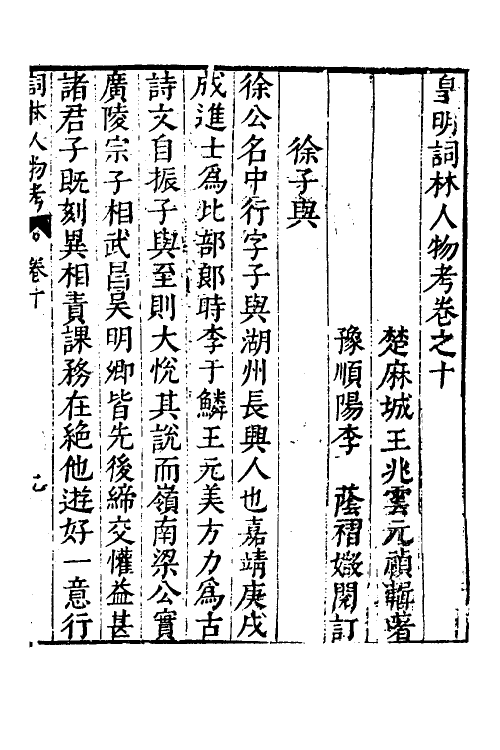 皇明詞林人物考卷之十
楚麻城王兆雲元禎輯著
豫順陽李　蔭襲美閱訂
徐子與
徐公名中行字子與湖州長興人也嘉靖庚戌
成進士爲比部郎時李于鱗王元美方力爲古
詩文自振子與至則大悅其說而嶺南梁公實
廣陵宗子相武昌吳明卿皆先後締交懽益甚
諸君子旣刻異相責課務在絕他遊好一意行
詞林人物考　卷十